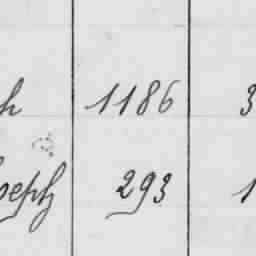 h 1186 3
oeph 293 1